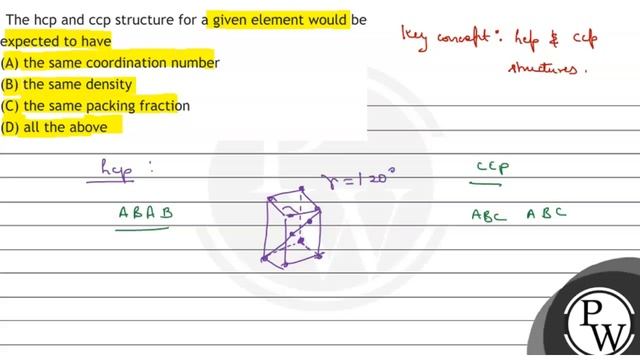 The hcp and ccp structure for a given element would be
expected to have
(A) the same coordination number
(B) the same density
(C) the same packing fraction
(D) all the above
Key concept: hcp & ccp
structures.
hcp :
γ = 120°
ccp
A B A B
ABC ABC
P
W